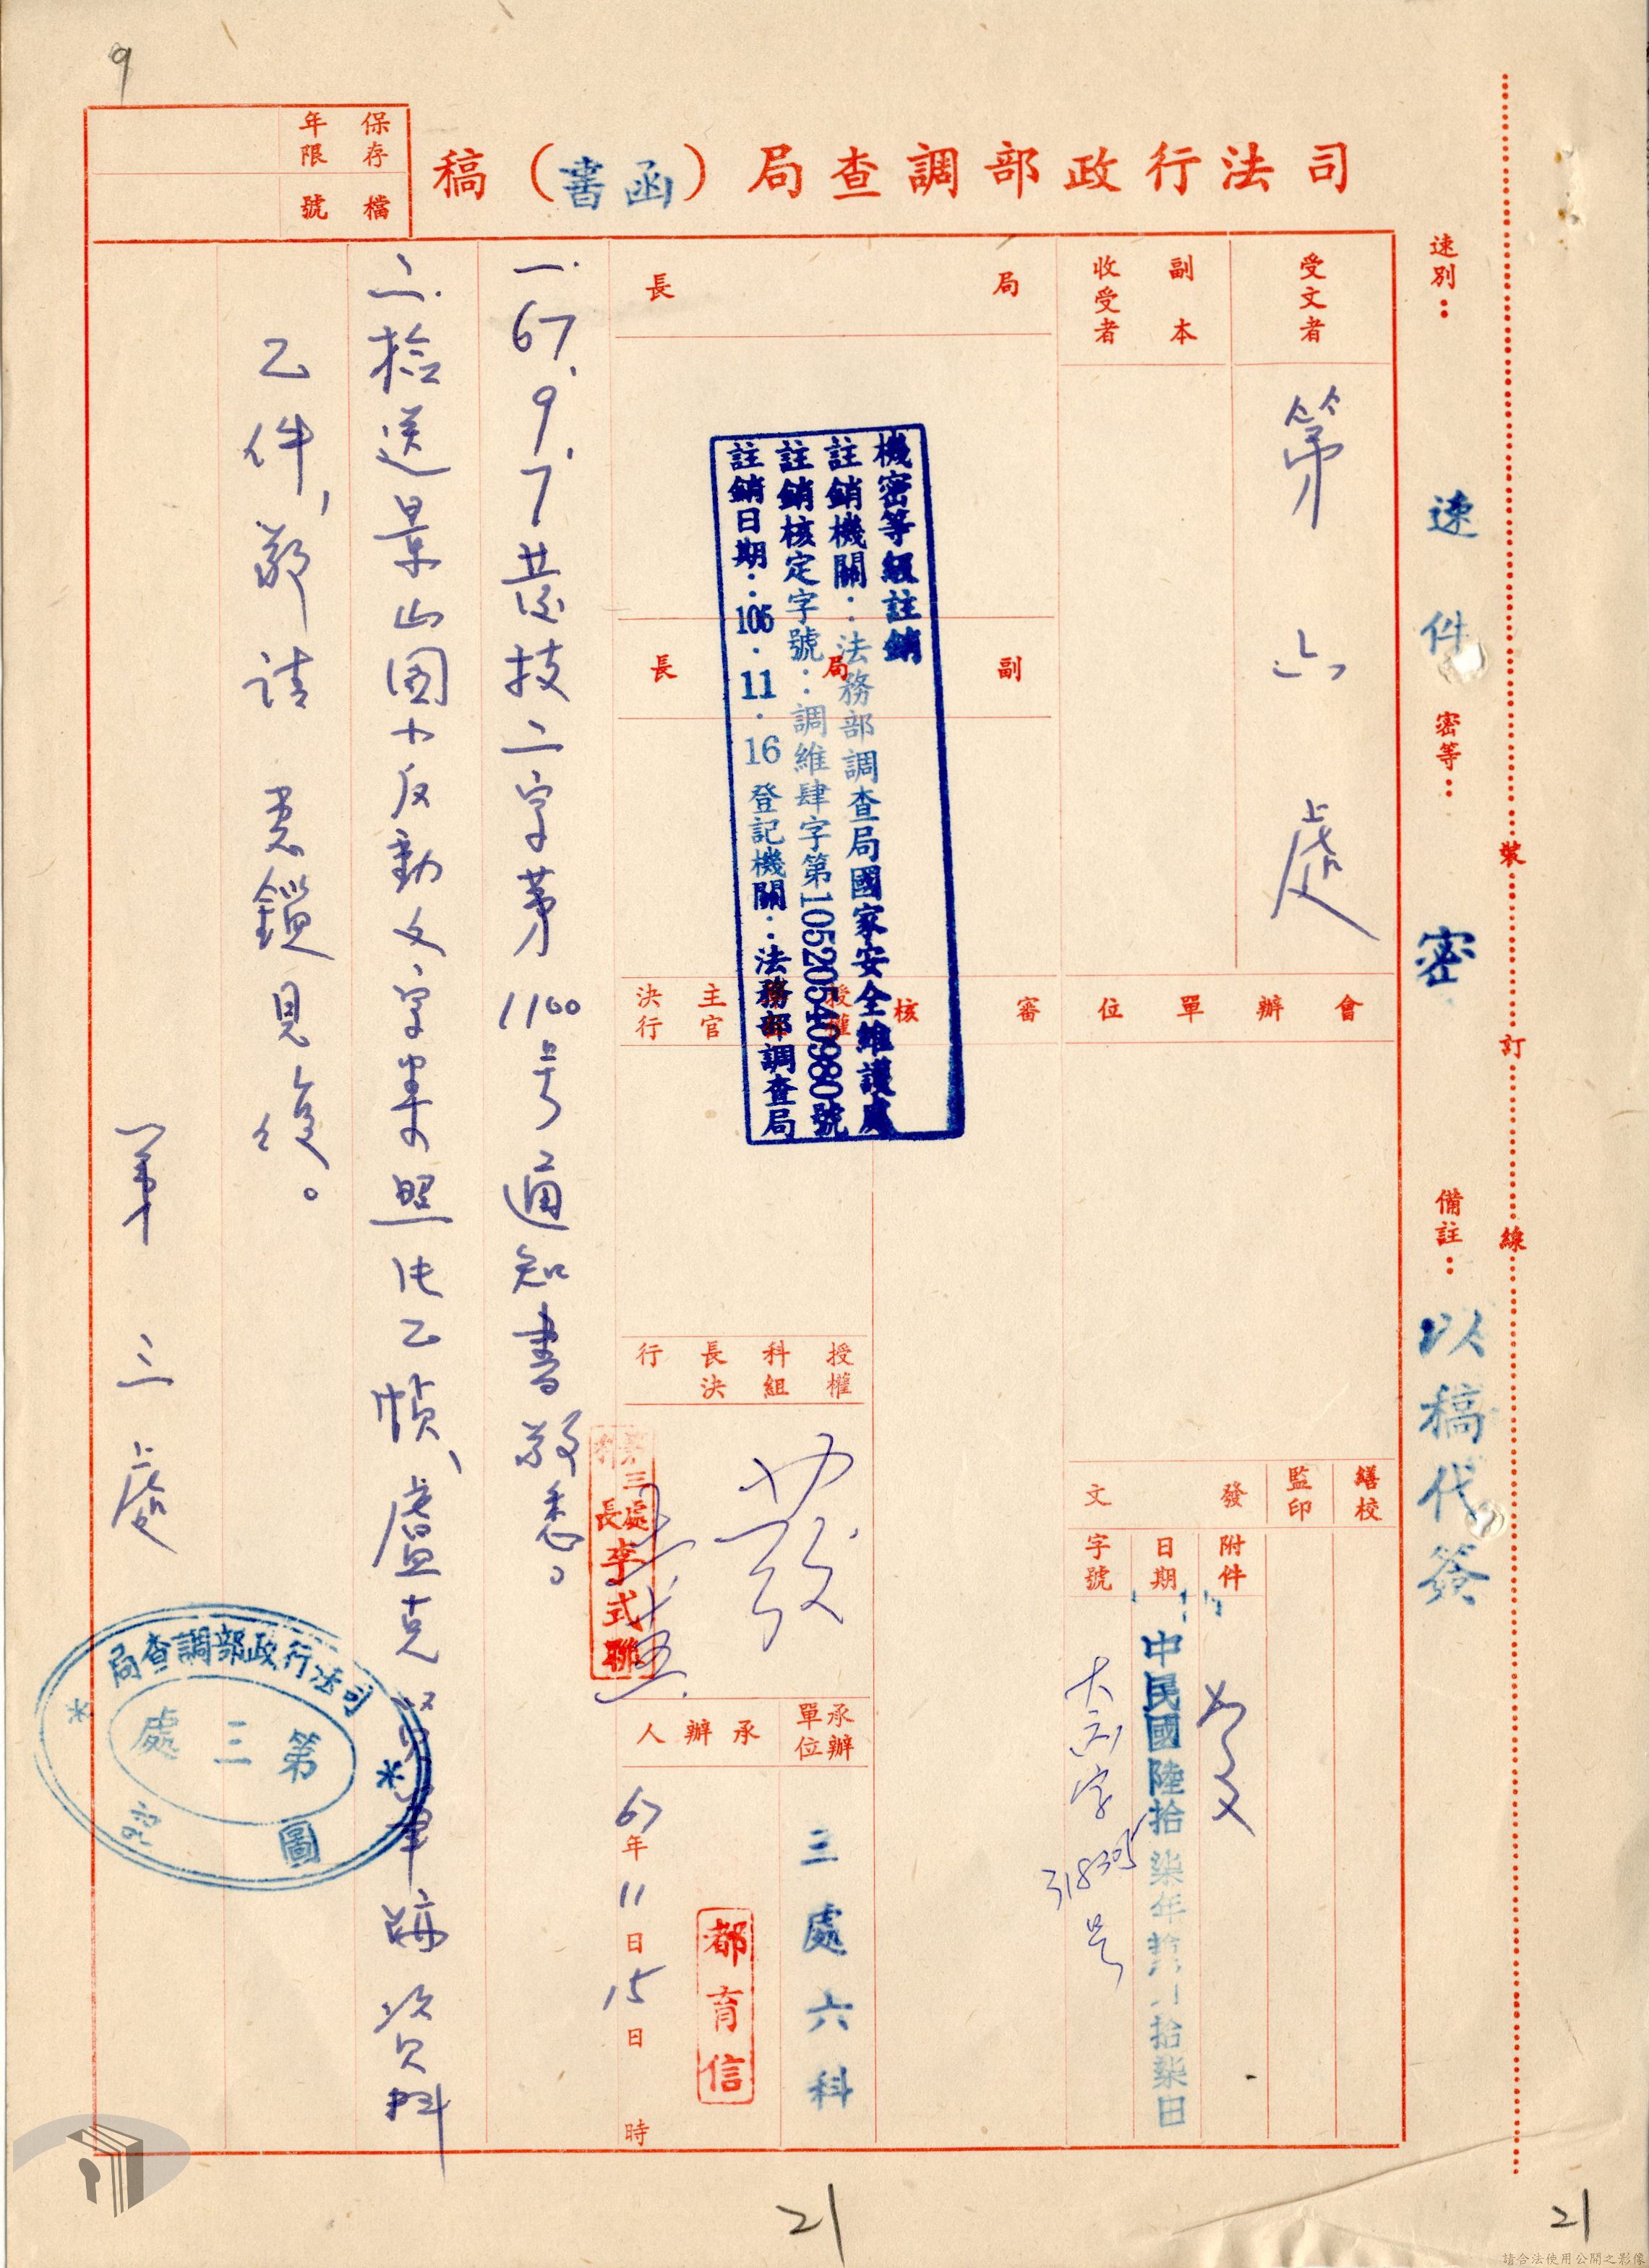 9
司法行政部調查局（函書）稿
保存年限
檔號
速別：速件
密等：密
備註：以稿代簽
裝訂線
受文者
第六處
副本收受者
局長
副局長
機密等級註銷
註銷機關：法務部調查局國家安全維護處
註銷核定字號：調維肆字第10520540980號
註銷日期：105.11.16登記機關：法務部調查局
會辦單位
審核
授權主官決行
繕校
監印
發文
附件
如文
日期
中民國陸拾柒年拾月拾柒日
字號
號
授權科組長決行
第三處處長李式聯
承辦單位
三處六科
承辦人
都育信
67年11日15日時
一.67.9.7.技二字第1100号通知書敬悉。
二.檢送景山國小反動文字案照片乙幀、盧克筆跡資料
乙件，請鑒見復。
第三處
司法行政部調查局
第三處
圖記
21
21
請合法使用公開之影像